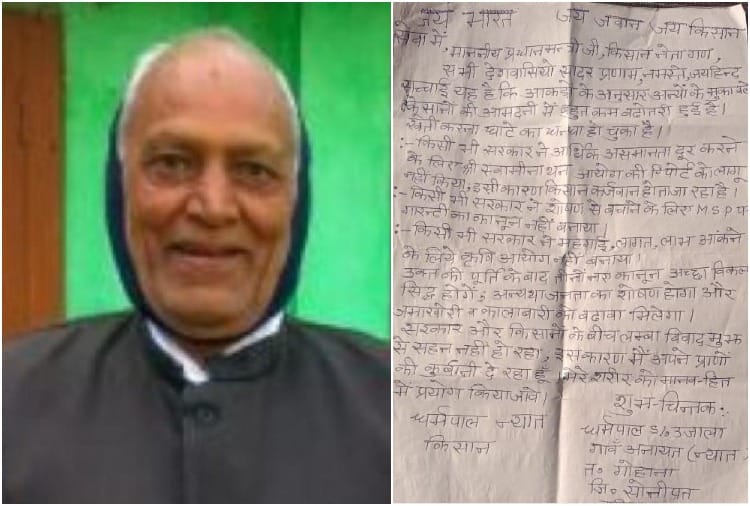 जय भारत जय जवान जय किसान
सेवा में,
माननीय प्रधानमन्त्री जी, किसान नेता गण,
सभी देशवासियो सादर प्रणाम, नमस्ते, जयहिन्द
सच्चाई यह है कि आकड़ो के अनुसार अन्यों के मुकाबले
किसानो की आमदनी में बहुत कम बढोतरी हुई है।
खेती करना घाटे का धन्धा हो चुका है।।
:- किसी भी सरकार ने आर्थिक असमानता दूर करने
के लिए श्री स्वामीनाथन आयोग की रिपोर्ट को लागू
नहीं किया, इसी कारण किसान कर्जवान होता जा रहा है।
:- किसी भी सरकार ने शोषण से बचाने के लिए MSP प
गारन्टी का कानून नहीं बनाया।
:- किसी भी सरकार ने महगाई, लागत, लाभ आंकने
के लिये कृषि आयोग नही बनाया।
उक्त की पूर्ति के बाद तीनों नए कानून अच्छा विकल्प
सिद्ध होगें; अन्यथा जनता का शोषण होगा और
जमाखोरी व कालाबारी को बढावा मिलेगा।
सरकार और किसानो के बीच लम्बा विवाद मुझ
से सहन नहीं हो रहा, इस कारण में अपने प्राणों
की कुर्बानी दे रहा हूँ। मेरे शरीर को मानव-हित
में प्रयोग किया जावे।
शुभ-चिन्तक:-
धर्मपाल न्यात
किसान
धर्मपाल S/o उजाला
गावँ अनायत (न्यात)
त० गोहाना
जि० सोनीपत